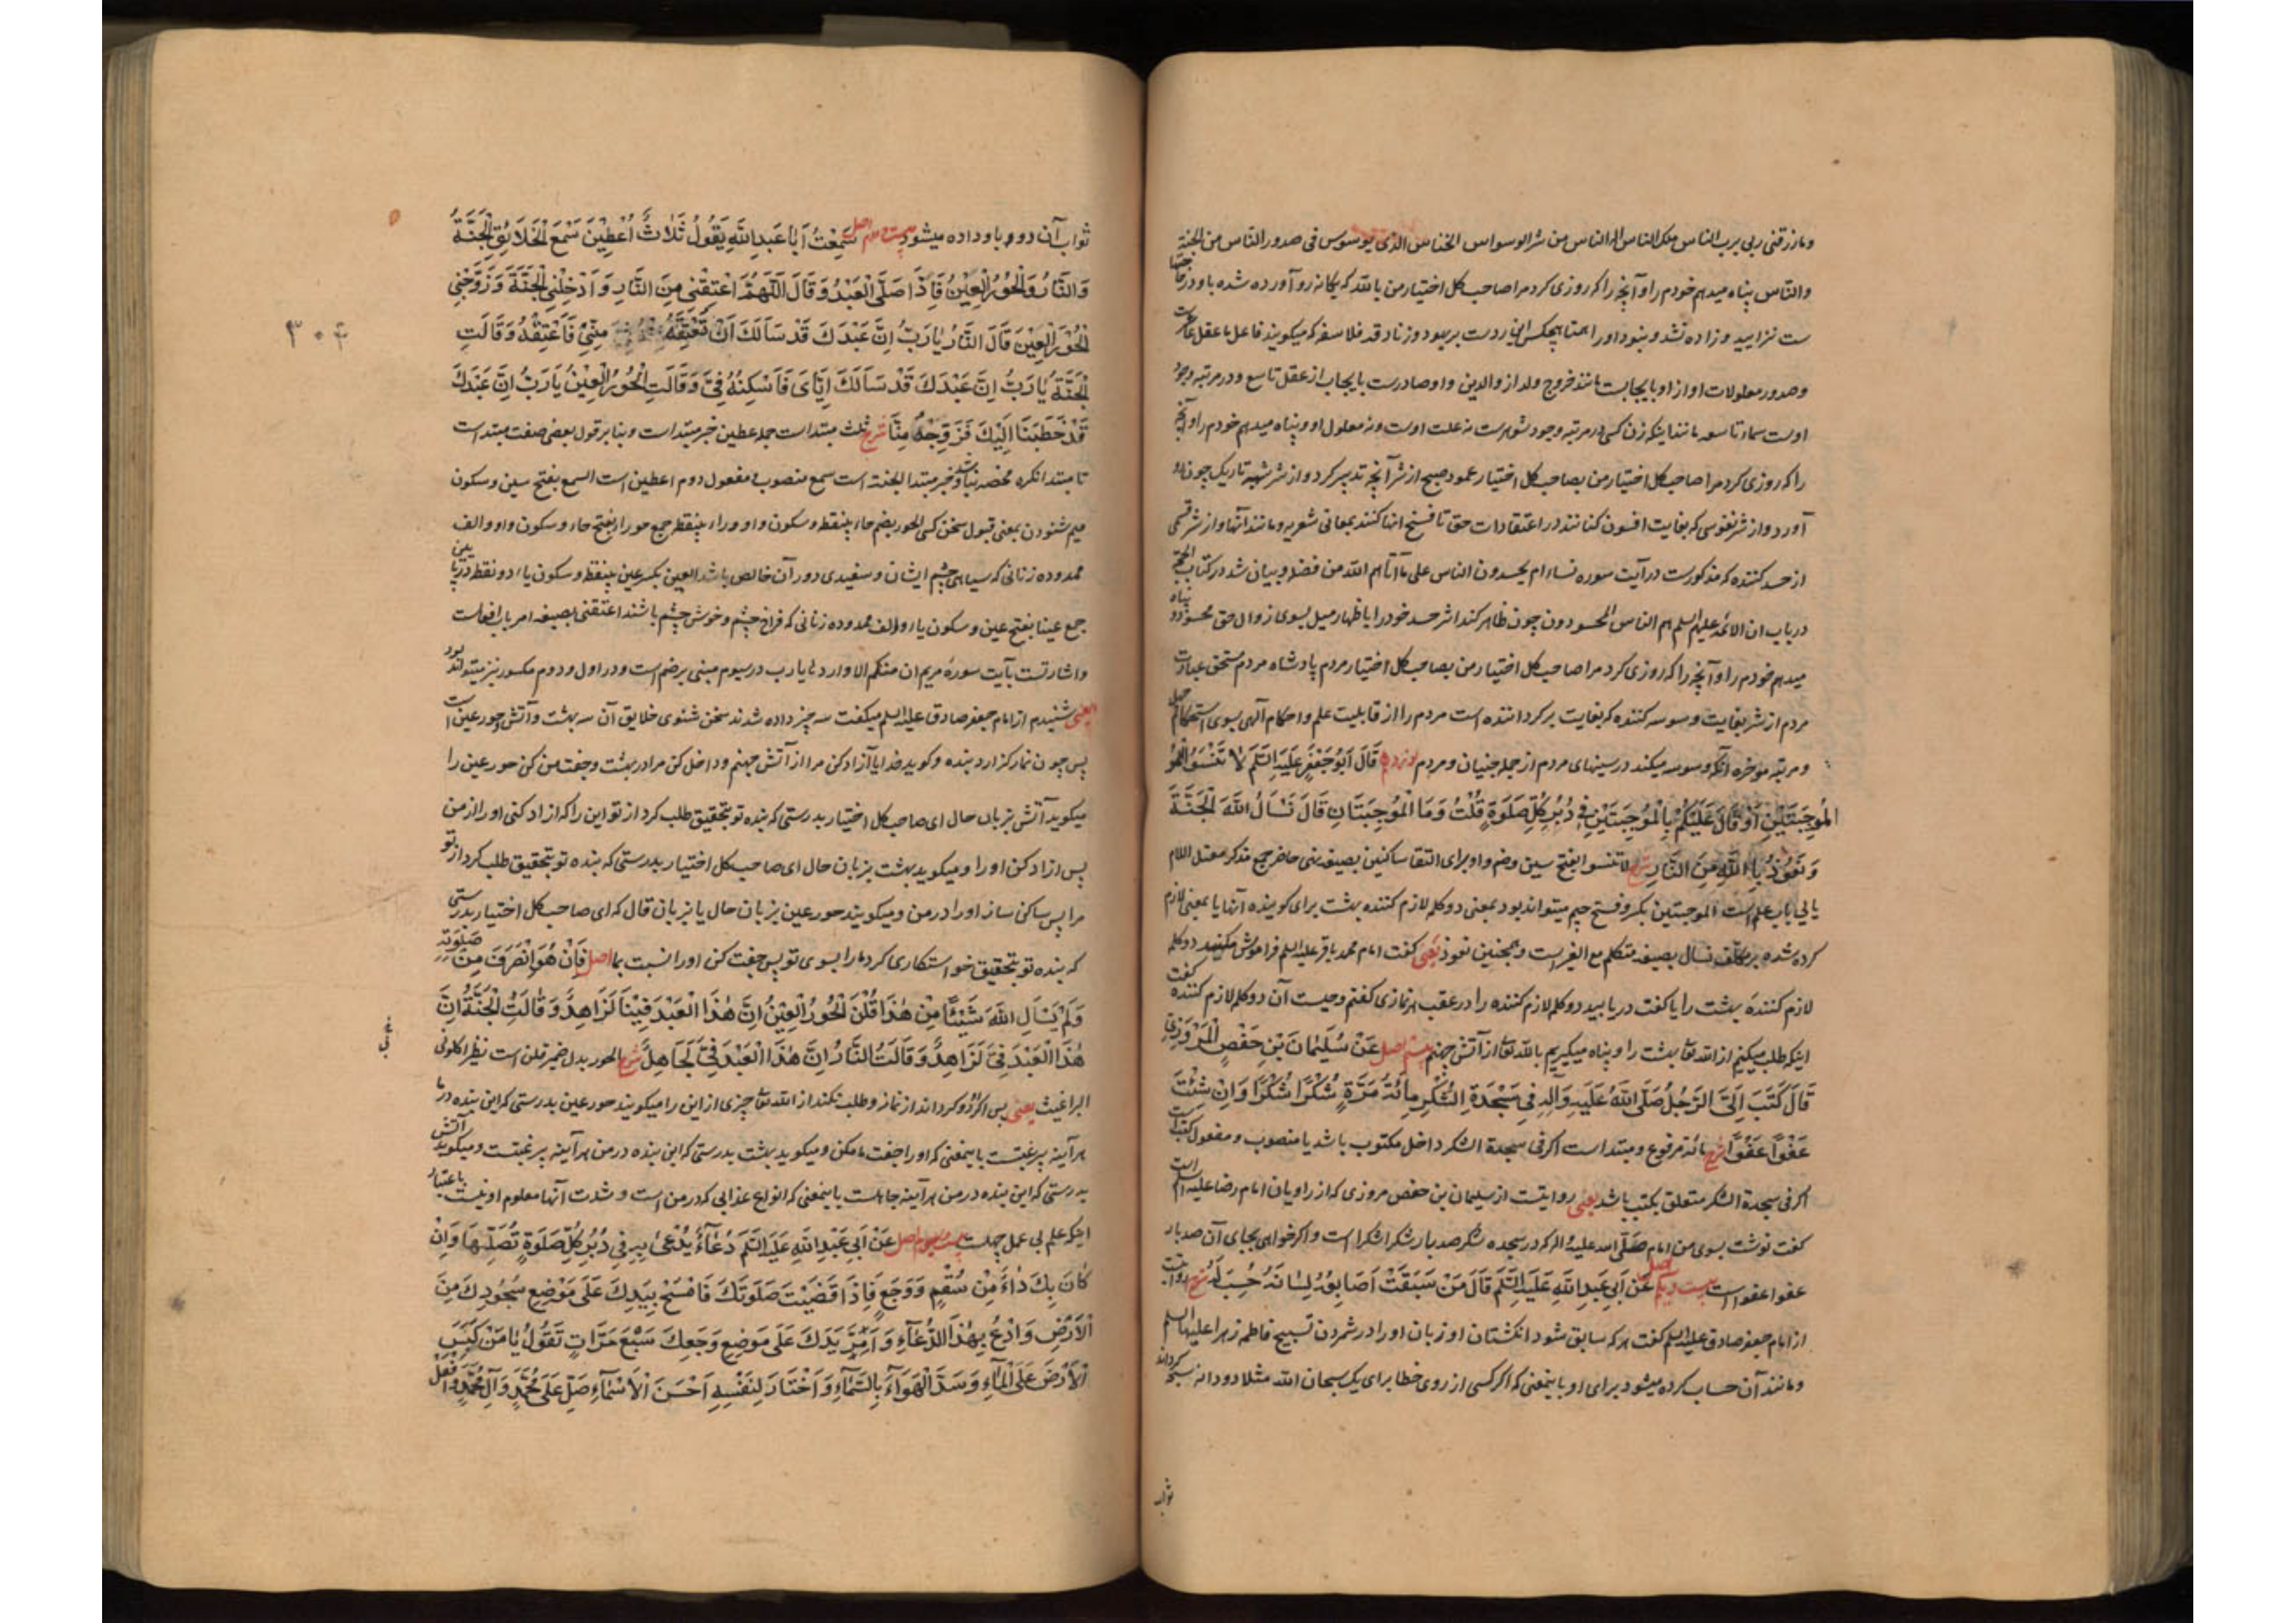 ومارزقنی ربی برب الناس ملک الناس اله الناس من شر الوسواس الخناس الذی یوسوس فی صدور الناس من الجنة
والناس پناه میدهم خودم را و آنچه را که روزی کرد مرا صاحب کل اختیار من بالله که یکانه رو آورده شده باو در حاجتها
ست نزایید و زاده نشد و نبود او را همتا هیچکس این ردست بر یهود و زنادقه فلاسفه که میکویند فاعل ما عقل عاشرست
وصدور معلولات او از او بایجابست مانند خروج ولد از والدین و او صادرست بایجاب از عقل تاسع و در مرتبه وجود
اوست سماء تاسعه مانند اینکه زن کسی در مرتبه وجود شوهرست نه علت اوست و نه معلول او و پناه میدهم خودم را و آنچه
را که روزی کرد مرا صاحب کل اختیار من بصاحب کل اختیار عمود صبح از شر آنچه تدبیر کرد و از شر شبهه تاریک چون رو
آورد و از شر نفوسی که بغایت افسون کنانند در اعتقادات حق تا فسخ آنها کنند بمعانی شعریه و مانند آنها و از شر قسمی
از حسد کننده که مذکورست در آیت سوره نساء ام یحسدون الناس علی ما آتاهم الله من فضله و بیان شد در کتاب الحجه
در باب ان الائمه علیهم السلم هم الناس المحسودون چون ظاهر کند اثر حسد خود را باظهار میل بسوی زوال حق محسود و پناه
میدهم خودم را و آنچه را که روزی کرد مرا صاحب کل اختیار من بصاحب کل اختیار مردم پادشاه مردم مستحق عبادت
مردم از شر بغایت وسوسه کننده که بغایت برکرداننده است مردم را از قابلیت علم و احکام آلهی بسوی استحکام جهل
و مرتبه موخره آنکه وسوسه میکند در سینهای مردم از جمله جنیان و مردم نوزدهم قَالَ اَبُوجَعْفَرٍ عَلَيْهِ السَّلَمُ لَا تَنْسَوُا الْمُو
الْمُوجِبَتَيْنِ اَوْ قَالَ عَلَيْكُمْ بِالْمُوجِبَتَيْنِ فِي دُبُرِ كُلِّ صَلَوةٍ قُلْتُ وَمَا الْمُوجِبَتَانِ قَالَ تَسْأَلُ اللهَ الْجَنَّةَ
وَتَعُوذُ بِاللهِ مِنَ النَّارِ شرح لاتنسوا بفتح سین و ضم واو برای التقا ساکنین بصیغه نهی حاضر جمع مذکر معتل اللام
یایی باب علم است الموجبتین بکسر و فتح جیم میتواند بود بمعنی دو کلمه لازم کننده بهشت برای کوینده آنها یا بمعنی لازم
کرده شده بر مکلف نسال بصیغه متکلم مع الغیر است و همچنین نعوذ یعنی کفت امام محمد باقر علیه السلم فراموش مکنید دو کلمه
لازم کننده بهشت را یا کفت دریابید دو کلمه لازم کننده را در عقب هر نمازی کفتم و چیست آن دو کلمه لازم کننده کفت
اینکه طلب میکنیم از الله تعا بهشت را و پناه میکیریم بالله تعا از آتش جهنم بیستم اصل عَنْ سُلَيْمَانَ بْنِ حَفْصٍ الْمَرْوَزِيِّ
قَالَ كَتَبَ اِلَيَّ الرَّجُلُ صَلَّى اللهُ عَلَيْهِ وَآلِهِ فِي سَجْدَةِ الشُّكْرِ مِائَةُ مَرَّةٍ شُكْرًا شُكْرًا وَاِنْ شِئْتَ
عَفْوًا عَفْوًا شرح مائة مرفوع و مبتداست اکر فی سجدة الشکر داخل مکتوب باشد یا منصوب و مفعول کتب است
اکر فی سجدة الشکر متعلق بکتب باشد یعنی روایتست از سلیمان بن حفص مروزی که از راویان امام رضا علیه السلم است
کفت نوشت بسوی من امام صلی الله علیه واله که در سجده شکر صد بار شکرا شکرا است و اکر خواهی بجای آن صد بار
عفوا عفوا است بیست و یکم اصل عَنْ اَبِي عَبْدِ اللهِ عَلَيْهِ السَّلَمُ قَالَ مَنْ سَبَقَتْ اَصَابِعُهُ لِسَانَهُ حُسِبَ لَهُ شرح روایتست
از امام جعفر صادق علیه السلم کفت هر که سابق شود انکشتان او زبان او را در شمردن تسبیح فاطمه زهرا علیها السلم
و مانند آن حساب کرده میشود برای او باینمعنی که اکر کسی از روی خطا برای یک سبحان الله مثلا دو دانه سبحه کرداند
ثواب آن دو و باو داده میشود بیست و دوم اصل سَمِعْتُ اَبَا عَبْدِ اللهِ يَقُولُ ثَلَاثٌ اُعْطِيْنَ سَمْعَ الْخَلَائِقِ الْجَنَّةُ
وَالنَّارُ وَالْحُورُ الْعِيْنُ فَاِذَا صَلَّى الْعَبْدُ وَقَالَ اَللّٰهُمَّ اعْتِقْنِي مِنَ النَّارِ وَاَدْخِلْنِي الْجَنَّةَ وَزَوِّجْنِي
الْحُورَ الْعِيْنَ قَالَ النَّارُ يَا رَبِّ اِنَّ عَبْدَكَ قَدْ سَاَلَكَ اَنْ تُعْتِقَهُ مِنِّي فَاَعْتِقْهُ وَقَالَتِ
الْجَنَّةُ يَا رَبِّ اِنَّ عَبْدَكَ قَدْ سَاَلَكَ اِيَّايَ فَاَسْكِنْهُ فِيَّ وَقَالَتِ الْحُورُ الْعِيْنُ يَا رَبِّ اِنَّ عَبْدَكَ
قَدْ خَطَبَنَا اِلَيْكَ فَزَوِّجْهُ مِنَّا شرح ثلث مبتداست جمله اعطین خبر مبتداست و بنا بر قول بعضی صفت مبتداست
تا مبتدا نکره مخصصه باشد و خبر مبتدا الجنة است سمع منصوب و مفعول دوم اعطین است السمع بفتح سین و سکون
میم شنودن بمعنی قبول سخن کسی الحور بضم حاء بینقطه و سکون واو و راء بینقطه جمع حوراء بفتح حاء و سکون واو و الف
ممدوده زنانی که سیاهی چشم ایشان و سفیدی دور آن خالص باشد العین بکسر عین بینقطه و سکون یاء دو نقطه در پایین
جمع عیناء بفتح عین و سکون یاء و الف ممدوده زنانی که فراخ چشم و خوش چشم باشند اعتقنی بصیغه امر باب افعالست
و اشارتست بآیت سوره مریم ان منکم الا واردها یا رب در سیوم مبنی بر ضم است و در اول و دوم مکسور نیز میتواند بود
یعنی شنیدم از امام جعفر صادق علیه السلم میکفت سه چیز داده شدند سخن شنوی خلایق آن سه بهشت و آتش و حور عین است
پس چون نماز کزارد بنده و کوید خدایا آزاد کن مرا از آتش جهنم و داخل کن مرا در بهشت و جفت من کن حور عین را
میکوید آتش بزبان حال ای صاحب کل اختیار بدرستی که بنده تو بتحقیق طلب کرد از تو این را که ازاد کنی او را از من
پس ازاد کن او را و میکوید بهشت بزبان حال ای صاحب کل اختیار بدرستی که بنده تو بتحقیق طلب کرد از تو
مرا پس ساکن ساز او را در من و میکویند حور عین بزبان حال یا بزبان قال که ای صاحب کل اختیار بدرستی
که بنده تو بتحقیق خواستکاری کرد ما را بسوی تو پس جفت کن او را نسبت بما اصل فَاِنْ هُوَ انْصَرَفَ مِنْ صَلَوتِهِ
وَلَمْ يَسْاَلِ اللهَ شَيْئًا مِنْ هٰذَا قُلْنَ الْحُورُ الْعِيْنُ اِنَّ هٰذَا الْعَبْدَ فِيْنَا لَزَاهِدٌ وَقَالَتِ الْجَنَّةُ اِنَّ
هٰذَا الْعَبْدَ فِيَّ لَزَاهِدٌ وَقَالَتِ النَّارُ اِنَّ هٰذَا الْعَبْدَ فِيَّ لَجَاهِلٌ شرح الحور بدل ضمیر قلن است نظیر اکلونی
البراغیث یعنی پس اکر رو کرداند از نماز و طلب نکند از الله تعا چیزی از این را میکویند حور عین بدرستی که این بنده در ما
هر آینه بیرغبتست باینمعنی که او را جفت ما مکن و میکوید بهشت بدرستی که این بنده در من هر آینه بیرغبتست و میکوید آتش
بدرستی که این بنده در من هر آینه جاهلست باینمعنی که انواع عذابی که در من است و شدت آنها معلوم او نیست باعتبار
اینکه علم بی عمل جهلست بیست و سیوم اصل عَنْ اَبِي عَبْدِ اللهِ عَلَيْهِ السَّلَمُ دُعَاءٌ يُدْعَى بِهِ فِي دُبُرِ كُلِّ صَلَوةٍ تُصَلِّيْهَا وَاِنْ
كَانَ بِكَ دَاءٌ مِنْ سُقْمٍ وَوَجَعٍ فَاِذَا قَضَيْتَ صَلَوتَكَ فَامْسَحْ بِيَدِكَ عَلَى مَوْضِعِ سُجُودِكَ مِنَ
الْاَرْضِ وَادْعُ بِهٰذَا الدُّعَاءِ وَاَمِرَّ يَدَكَ عَلَى مَوْضِعِ وَجَعِكَ سَبْعَ مَرَّاتٍ تَقُولُ يَا مَنْ كَبَسَ
الْاَرْضَ عَلَى الْمَاءِ وَسَدَّ الْهَوَاءَ بِالسَّمَاءِ وَاخْتَارَ لِنَفْسِهِ اَحْسَنَ الْاَسْمَاءِ صَلِّ عَلَى مُحَمَّدٍ وَآلِ مُحَمَّدٍ وَافْعَلْ